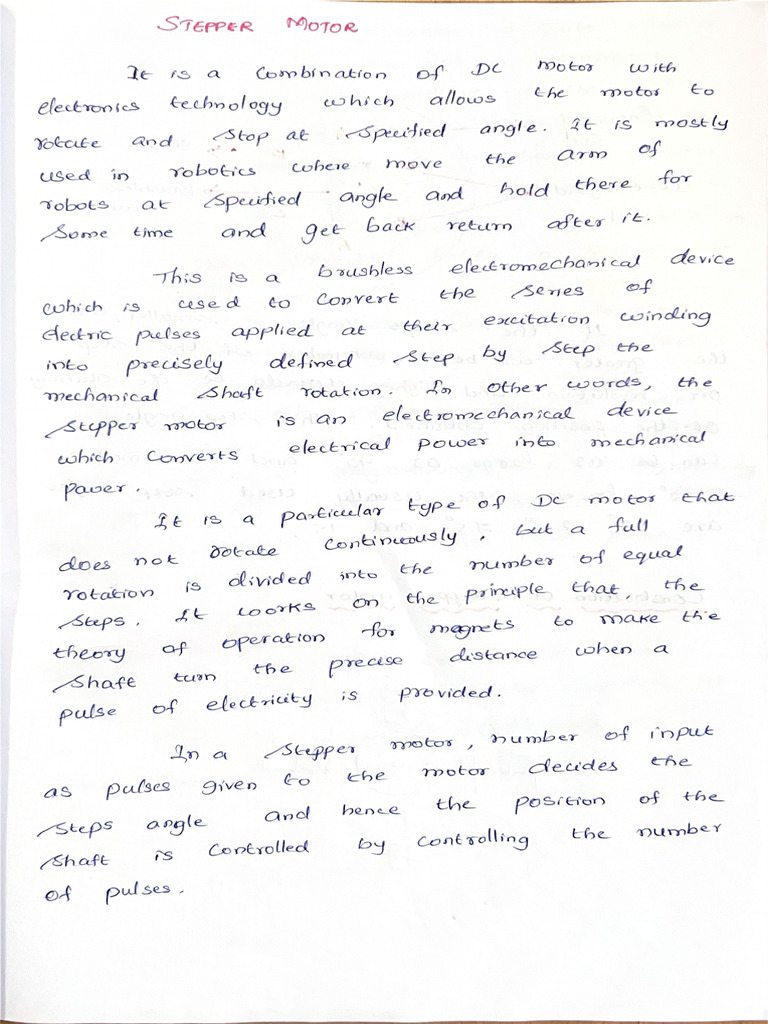 STEPPER MOTOR
It is a combination of DC motor with
electronics technology which allows the motor to
rotate and stop at specified angle. It is mostly
used in robotics where move the arm of
robots at specified angle and hold there for
some time and get back return after it.
This is a brushless electromechanical device
which is used to convert the series of
electric pulses applied at their excitation winding
into precisely defined step by step the
mechanical shaft rotation. In other words, the
stepper motor is an electromechanical device
which converts electrical power into mechanical
power.
It is a particular type of DC motor that
does not rotate continuously, but a full
rotation is divided into the number of equal
steps. It works on the principle that, the
theory of operation for magnets to make the
shaft turn the precise distance when a
pulse of electricity is provided.
In a stepper motor, number of input
as pulses given to the motor decides the
steps angle and hence the position of the
shaft is controlled by controlling the number
of pulses.